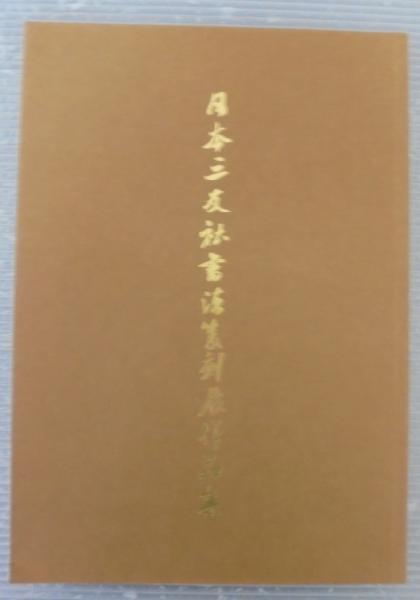 日本三友社書法篆刻展作品集